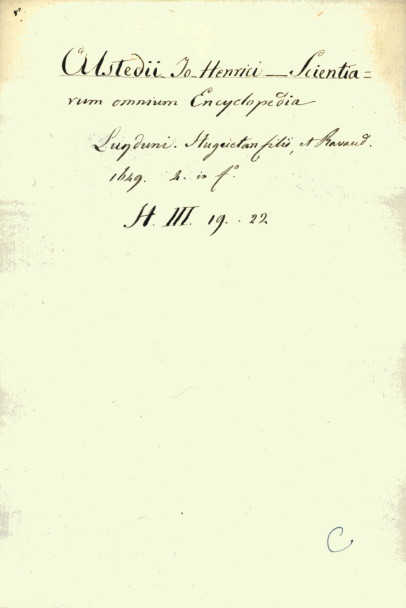 Alstedii Jo Henrici — Scientia=
rum omnium Encyclopedia
Lugduni. Huguetan filii, et Ravaud.
1649. 4. in f.º
H. III. 19. . 22
C